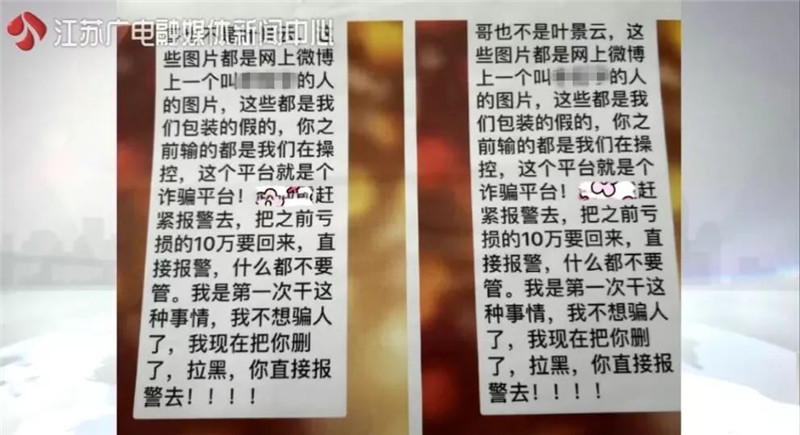 江苏广电融媒体新闻中心
些图片都是网上微博
上一个叫
的人
的图片，这些都是我
们包装的假的，你之
前输的都是我们在操
控，这个平台就是个
诈骗平台！
赶
紧报警去，把之前亏
损的10万要回来，直
接报警，什么都不要
管。我是第一次干这
种事情，我不想骗人
了，我现在把你删
了，拉黑，你直接报
警去！！！！
哥也不是叶景云，这
些图片都是网上微博
上一个叫
的人
的图片，这些都是我
们包装的假的，你之
前输的都是我们在操
控，这个平台就是个
诈骗平台！
赶
紧报警去，把之前亏
损的10万要回来，直
接报警，什么都不要
管。我是第一次干这
种事情，我不想骗人
了，我现在把你删
了，拉黑，你直接报
警去！！！！